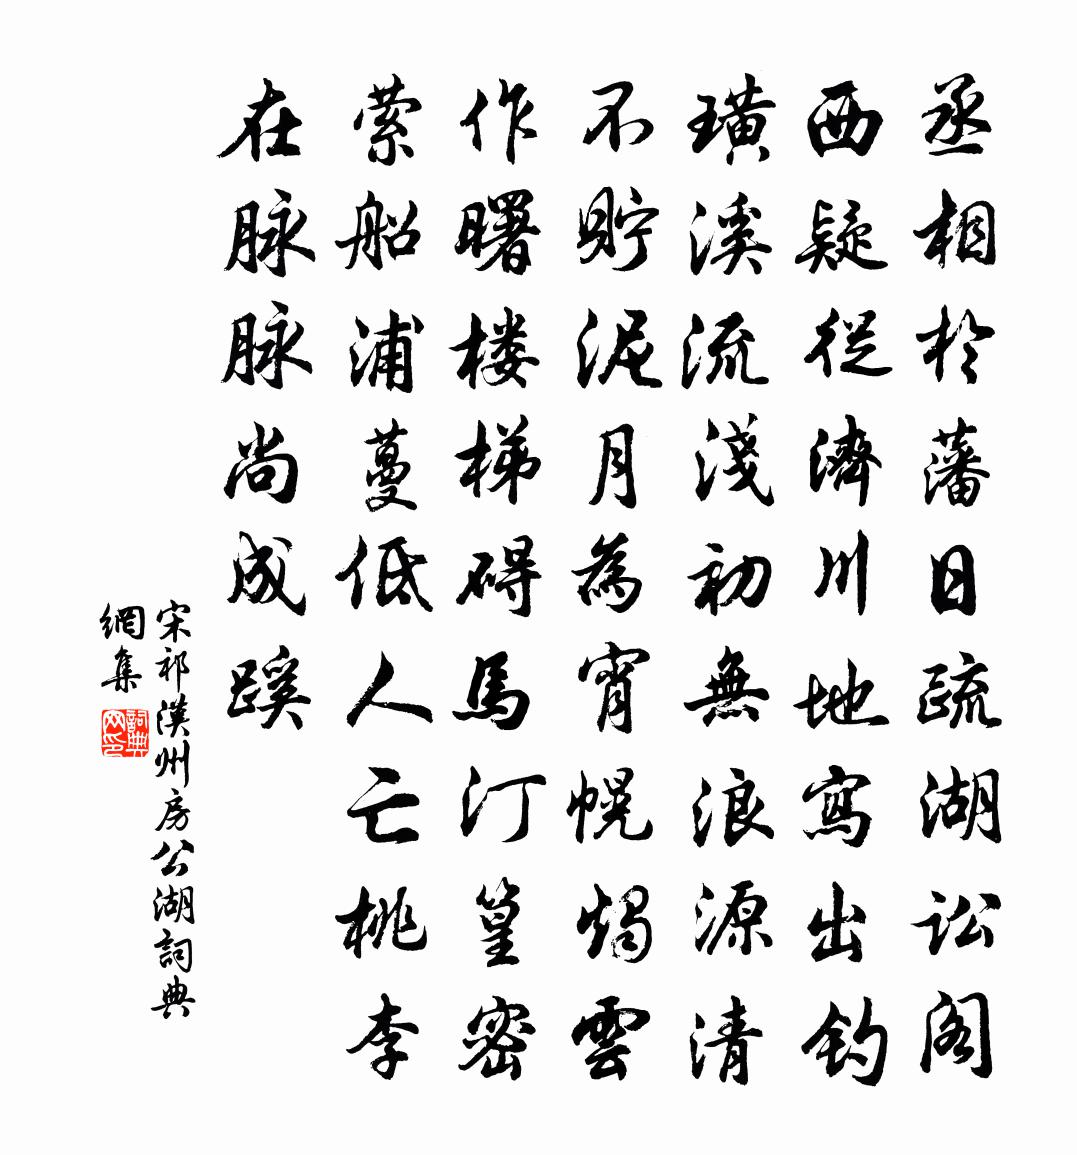 丞相於藩日疏湖訟阁
西疑從濟川地寫出钓
璜溪流淺初無浪源清
不貯泥月為宵幌燭雲
作曙楼梯碍馬汀篁密
萦船浦蔓低人亡桃李
在脉脉尚成蹊
宋祁漢州房公湖詞典
網集
詞典
网印